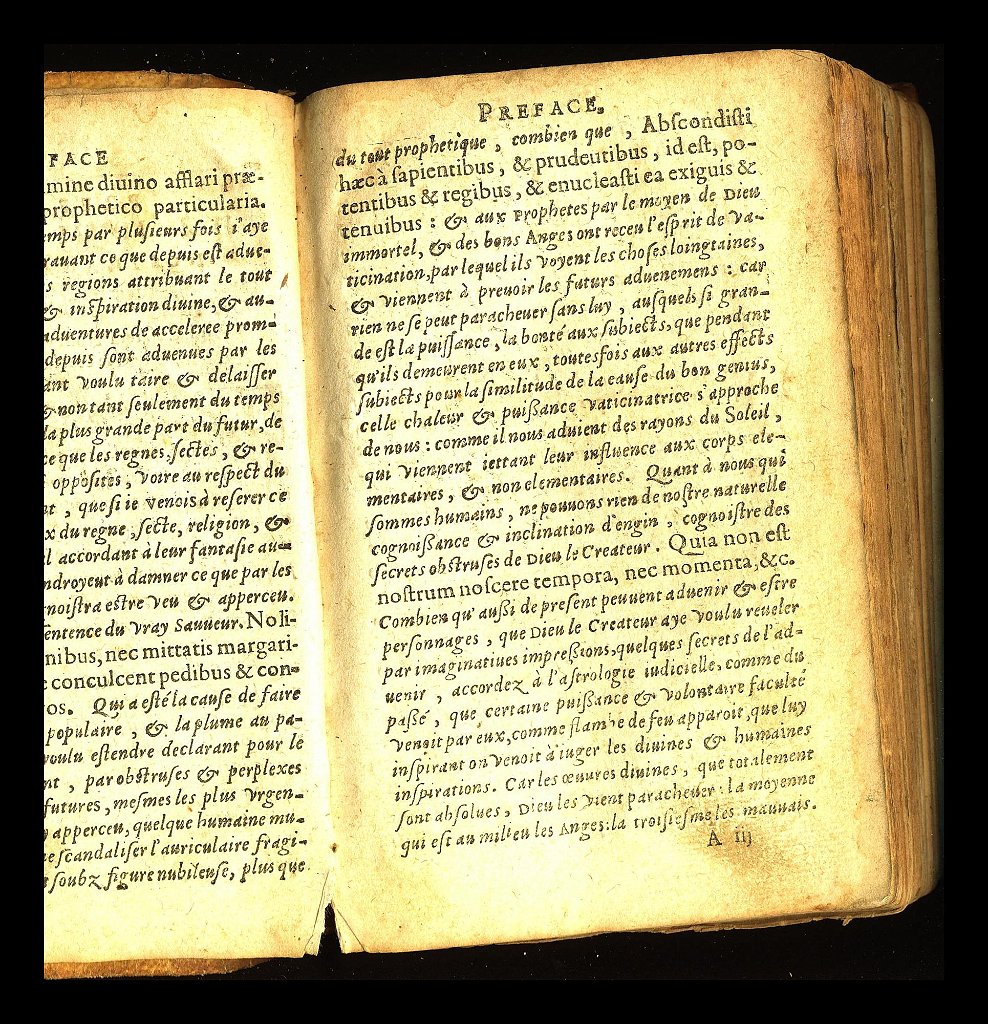 FACE
mine diuino afflari præ-
prophetico particularia.
emps par plusieurs fois i'aye
rauant ce que depuis est adue-
s regions attribuant le tout
& inspiration diuine, & au-
aduentures de acceleree prom-
depuis sont aduenues par les
ant voulu taire & delaisser
& non tant seulement du temps
la plus grande part du futur, de
ce que les regnes, sectes, & re-
opposites, voire au respect du
nt, que si ie venois à reserer ce
x du regne, secte, religion, &
l accordant à leur fantasie au-
ndroyent à damner ce que par les
noistra estre veu & apperceu.
sentence du vray Sauueur. No li-
nibus, nec mittatis margari-
e conculcent pedibus & con-
os. Qui a esté la cause de faire
populaire, & la plume au pa-
voulu estendre declarant pour le
nt, par obstruses & perplexes
futures, mesmes les plus vrgen-
y apperceu, quelque humaine mu-
ne scandaliser l'auriculaire fragi-
soubz figure nubileuse, plus que
PREFACE.
du tout prophetique, combien que, Abscondisti
hæc à sapientibus, & prudeutibus, id est, po-
tentibus & regibus, & enucleasti ea exiguis &
tenuibus : & aux Prophetes par le moyen de Dieu
immortel, & des bons Anges ont receu l'esprit de va-
ticination, par lequel ils voyent les choses loingtaines,
& viennent à preuoir les futurs aduenemens : car
rien ne se peut paracheuer sans luy, ausquels si gran-
de est la puissance, la bonté aux subiects, que pendant
qu'ils demeurent en eux, toutesfois aux autres effects
subiects pour la similitude de la cause du bon genius,
celle chaleur & puissance vaticinatrice s'approche
de nous : comme il nous aduient des rayons du Soleil,
qui viennent iettant leur influence aux corps ele-
mentaires, & non elementaires. Quant à nous qui
sommes humains, ne pouuons rien de nostre naturelle
cognoissance & inclination d'engin, cognoistre des
secrets obstruses de Dieu le Createur. Quia non est
nostrum noscere tempora, nec momenta, &c.
Combien qu'aussi de present peuuent aduenir & estre
personnages, que Dieu le Createur aye voulu reueler
par imaginatiues impressions, quelques secrets de l'ad-
uenir, accordez à l'astrologie iudicielle, comme du
passé, que certaine puissance & volontaire faculté
venoit par eux, comme flambe de feu apparoit, que luy
inspirant on venoit à iuger les diuines & humaines
inspirations. Car les œuures diuines, que totalement
sont absolues, Dieu les vient paracheuer : la moyenne
qui est au milieu les Anges : la troisiesme les mauuais.
A iij